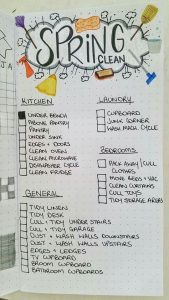 SPRING
CLEAN
KITCHEN
UNDER BENCH
ABOVE PANTRY
PANTRY
UNDER SINK
EDGES + DOORS
CLEAN OVEN
CLEAN MICROWAVE
DISHWASHER CYCLE
CLEAN FRIDGE
GENERAL
TIDY LINEN
TIDY DESK
CULL + TIDY UNDER STAIRS
CULL + TIDY GARAGE
DUST + WASH WALLS DOWNSTAIRS
DUST + WASH WALLS UPSTAIRS
EDGES + LEDGES
TV CUPBOARD
BROOM CUPBOARD
BATHROOM CUPBOARDS
LAUNDRY
CUPBOARD
JUNK CORNER
WASH MACH CYCLE
BEDROOMS
PACK AWAY/CULL
CLOTHES
MOVE BEDS + VAC
CLEAN CURTAINS
CULL TOYS
TIDY STORAGE AREAS